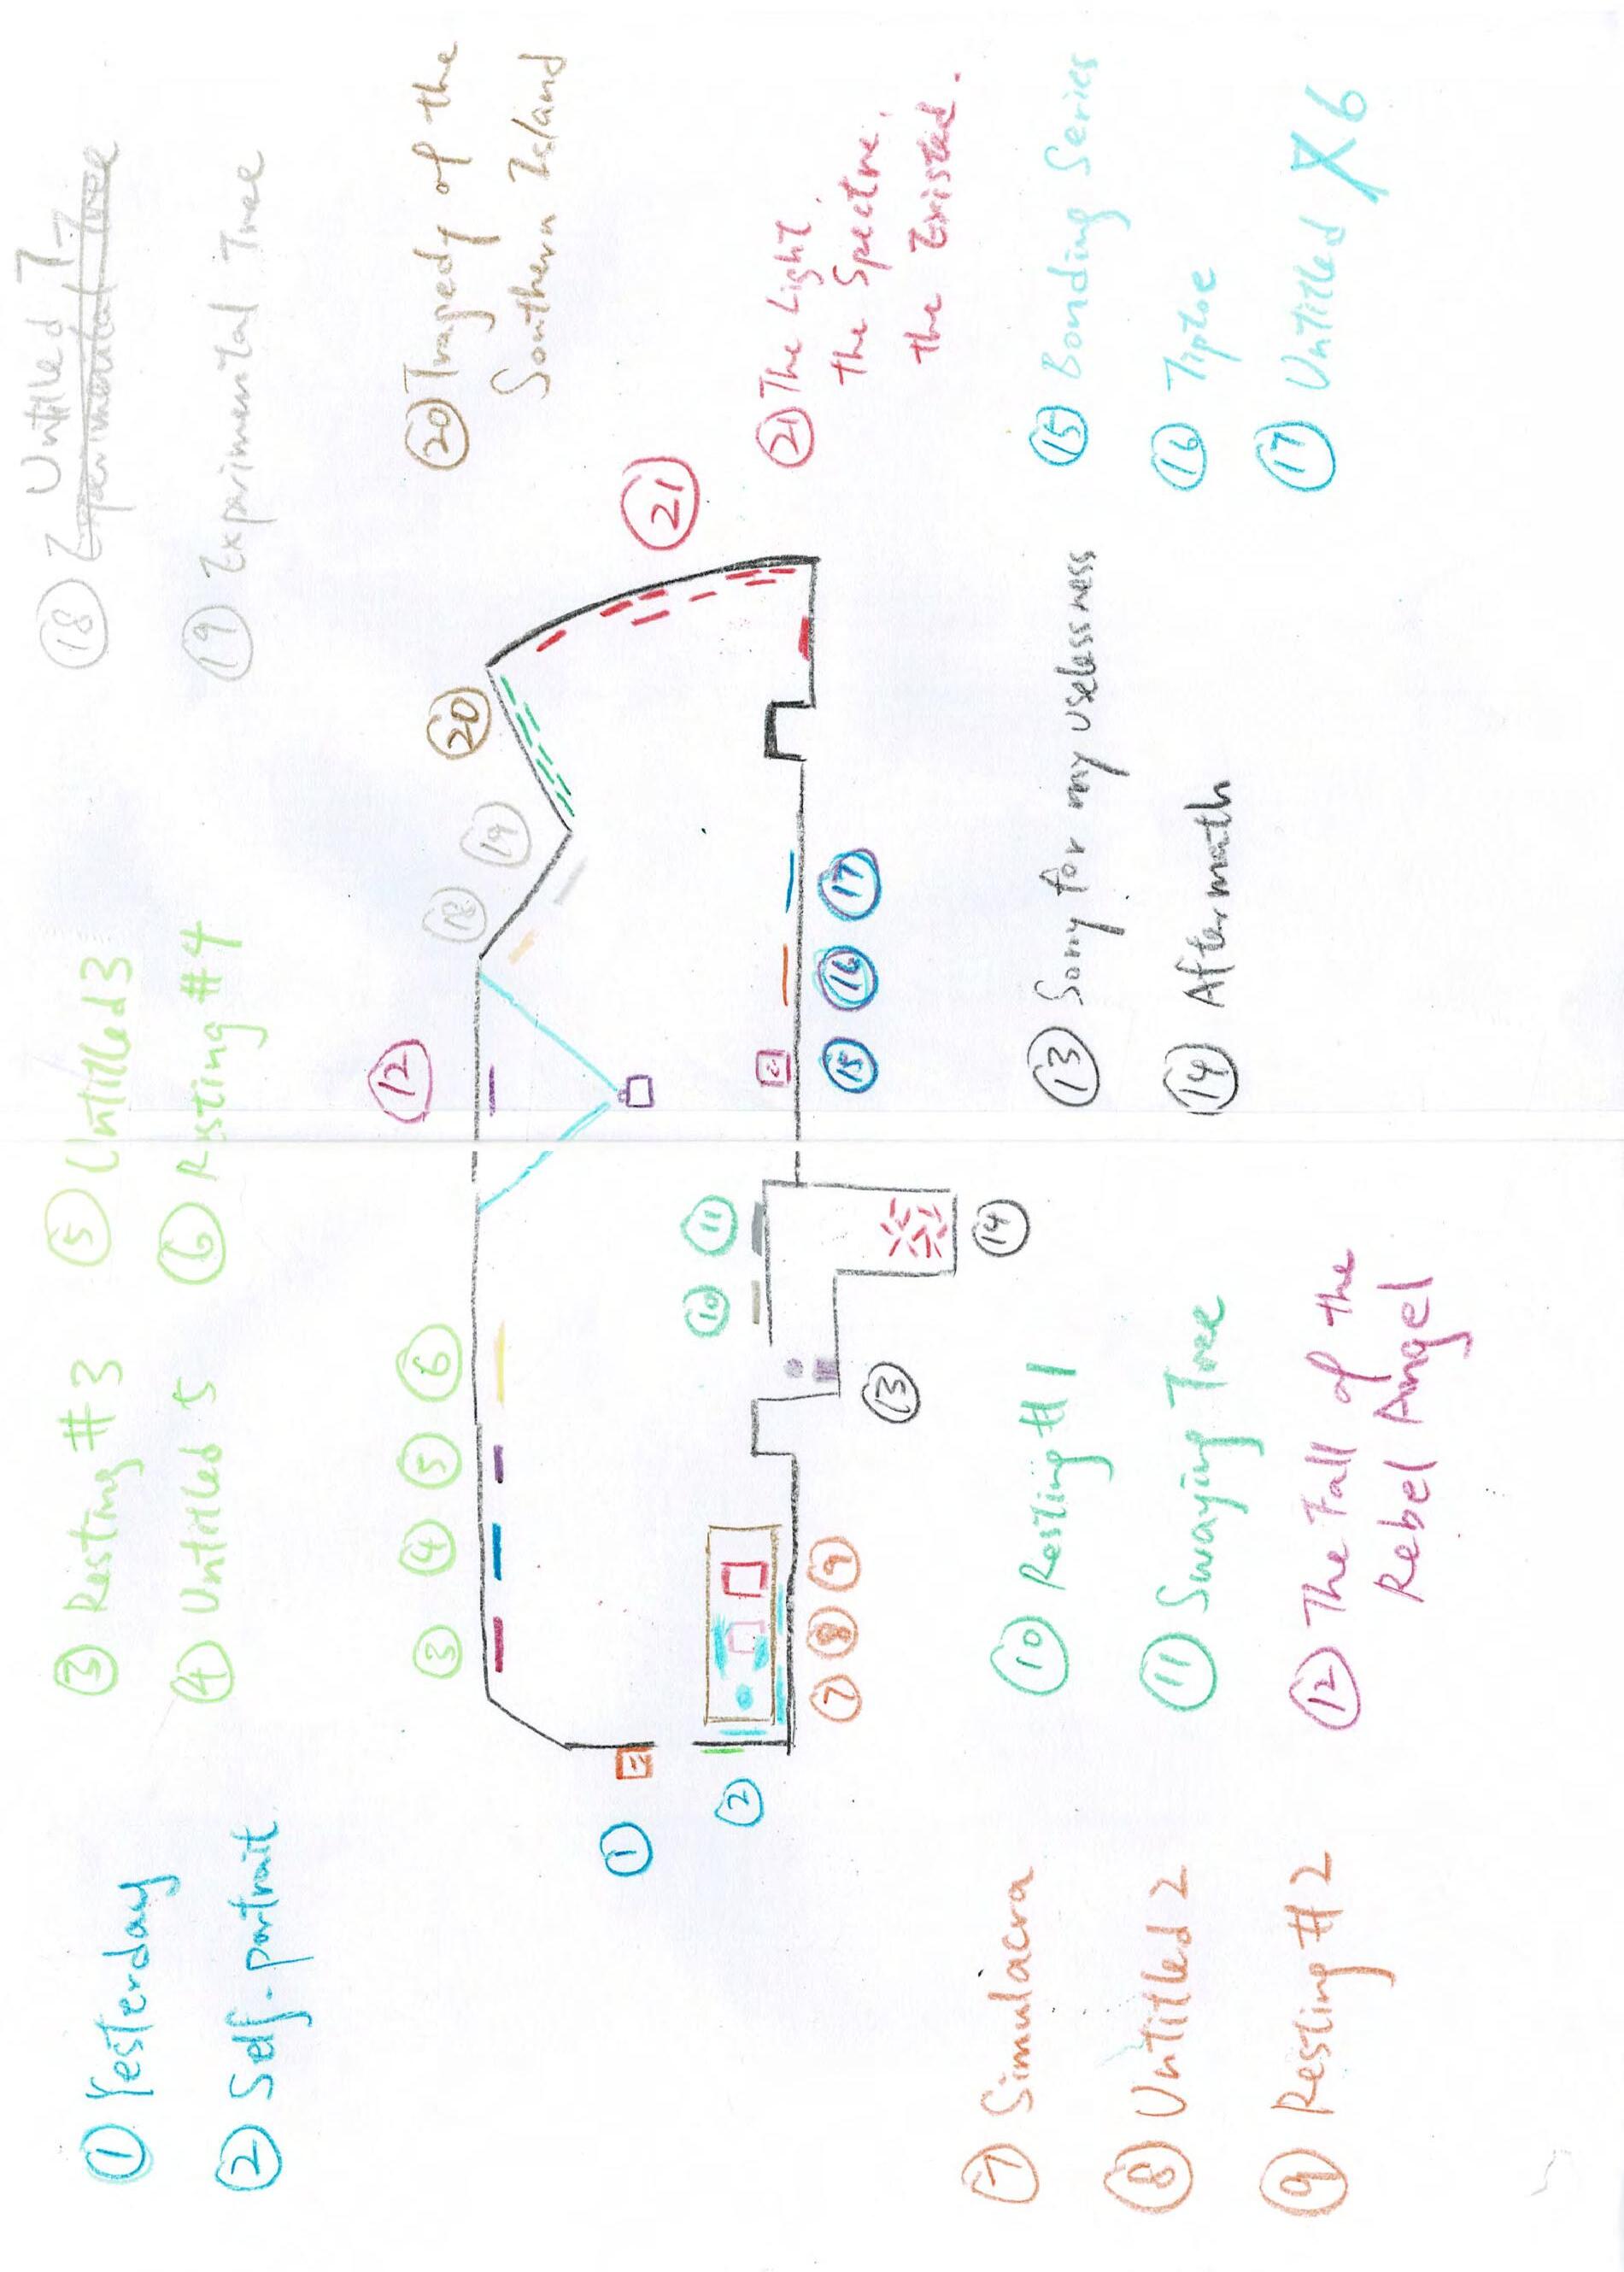 ① Yesterday
② Self-portrait
③ Resting #3
④ Untitled 5
⑤ Untitled 3
⑥ Resting #4
⑱ Untitled 7
Experimental Tree
⑲ Experimental Tree
⑳ Tragedy of the
Southern Island
㉑ The Light,
the Spectre,
the Existed.
① ② ③ ④ ⑤ ⑥
⑫ ⑱ ⑲ ⑳ ㉑
⑦ ⑧ ⑨ ⑩ ⑪
⑬ ⑭ ⑮ ⑯ ⑰
⑦ Simulacra
⑧ Untitled 2
⑨ Resting #2
⑩ Resting #1
⑪ Swaying Tree
⑫ The Fall of the
Rebel Angel
⑬ Sorry for my uselessness
⑭ Aftermath
⑮ Bonding Series
⑯ Tiptoe
⑰ Untitled X6